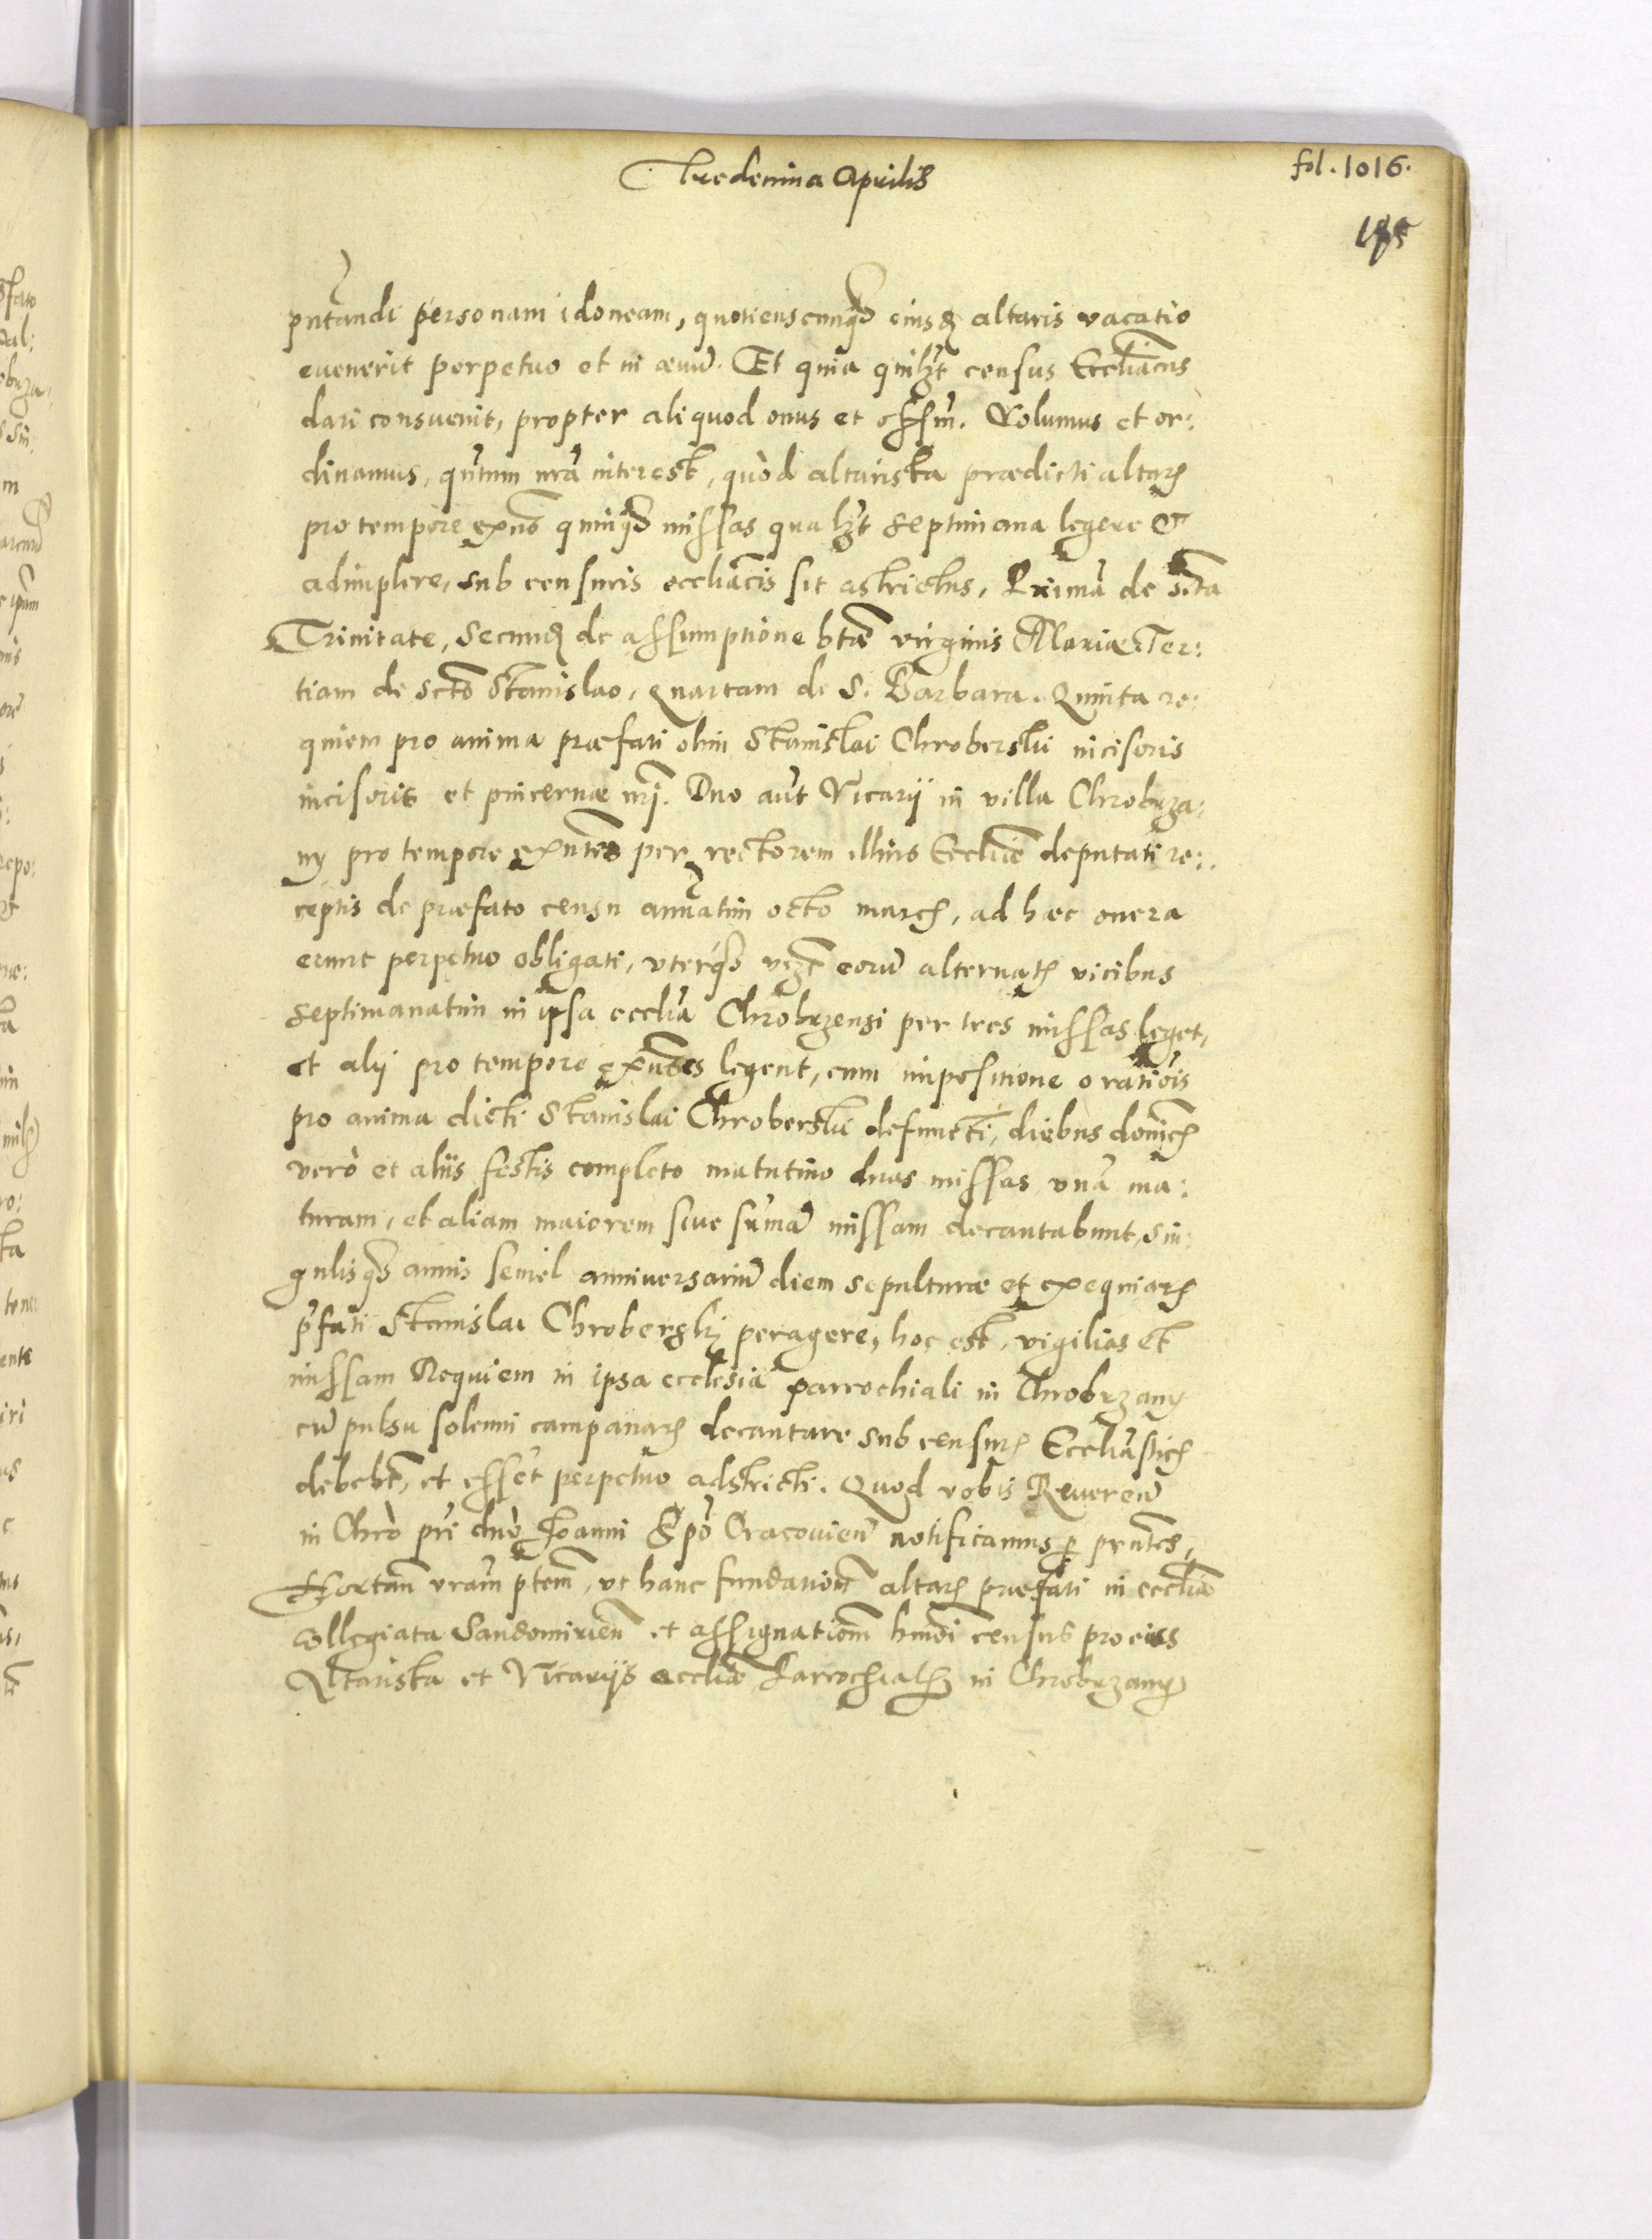 Tredecima Aprilis
fol. 1016.
185
pñtandi personam idoneam, quotienscunq3 eiusđ altaris vacatio
evenerit perpetuo et in ævũ. Et quia quilzt census Eccliãcus
dari consuevit, propter aliquod onus et offm̃. Volumus et or:
dinamus, qñtum nr̃a interest, quòd altarista prædicti altar
pro tempore exñs quinq3 missas qualzt septimana legere &
adimplere, sub censuris eccliãcis sit astrictus, Primã de scta
Trinitate, Secund de assumptione btæ virginis Mariæ Ter:
tiam de Scto Stanislao, Quartam de S. Barbara. Quinta re:
quiem pro anima præfati olim Stanislai Chroberskii incisoris
incisoris et pincernæ nrj. Duo aũt Vicarij in villa Chrobrza:
ny pro tempore exñtes per rectorem illius Eccliæ deputati re:
ceptis de præfato censu annuatim octo march, ad hæc onera
erunt perpetuo obligati, uterq3 vzt eorũ alternatis vicibus
septimanatim in ipsa ecclia Chrobrzensi per tres missas leget,
et alij pro tempore exñtes legent, cum impositione oratiõis
pro anima dicti Stanislai Chroberskii defuncti, diebus domich
verò et aliis festis completo matutino duas missas unã ma:
turam, et aliam maiorem sive sũmã missam decantabunt, sin:
gulisq3 annis semel anniversariũ diem sepulturæ et exequiar
pfati Stanislai Chroberskj peragere, hoc est, vigilias et
missam Requiem in ipsa ecclesia parrochiali in Chrobrzany
cũ pulsu solemni campanar decantare sub censuris Eccliastich
debebt, et esset perpetuo adstricti. Quod vobis Reverendũ
in Chro pri dno Joanni Epo Cracovieñ notificamus p prñtes,
Hortam̃ vram ptem, ut hanc fundationẽ altaris præfati in eccliæ
collegiata Sandomirieñ et assignationẽ hm̃oi census pro eius
Altarista et Vicarijs eccliæ Parrochialis in Chrobrzany